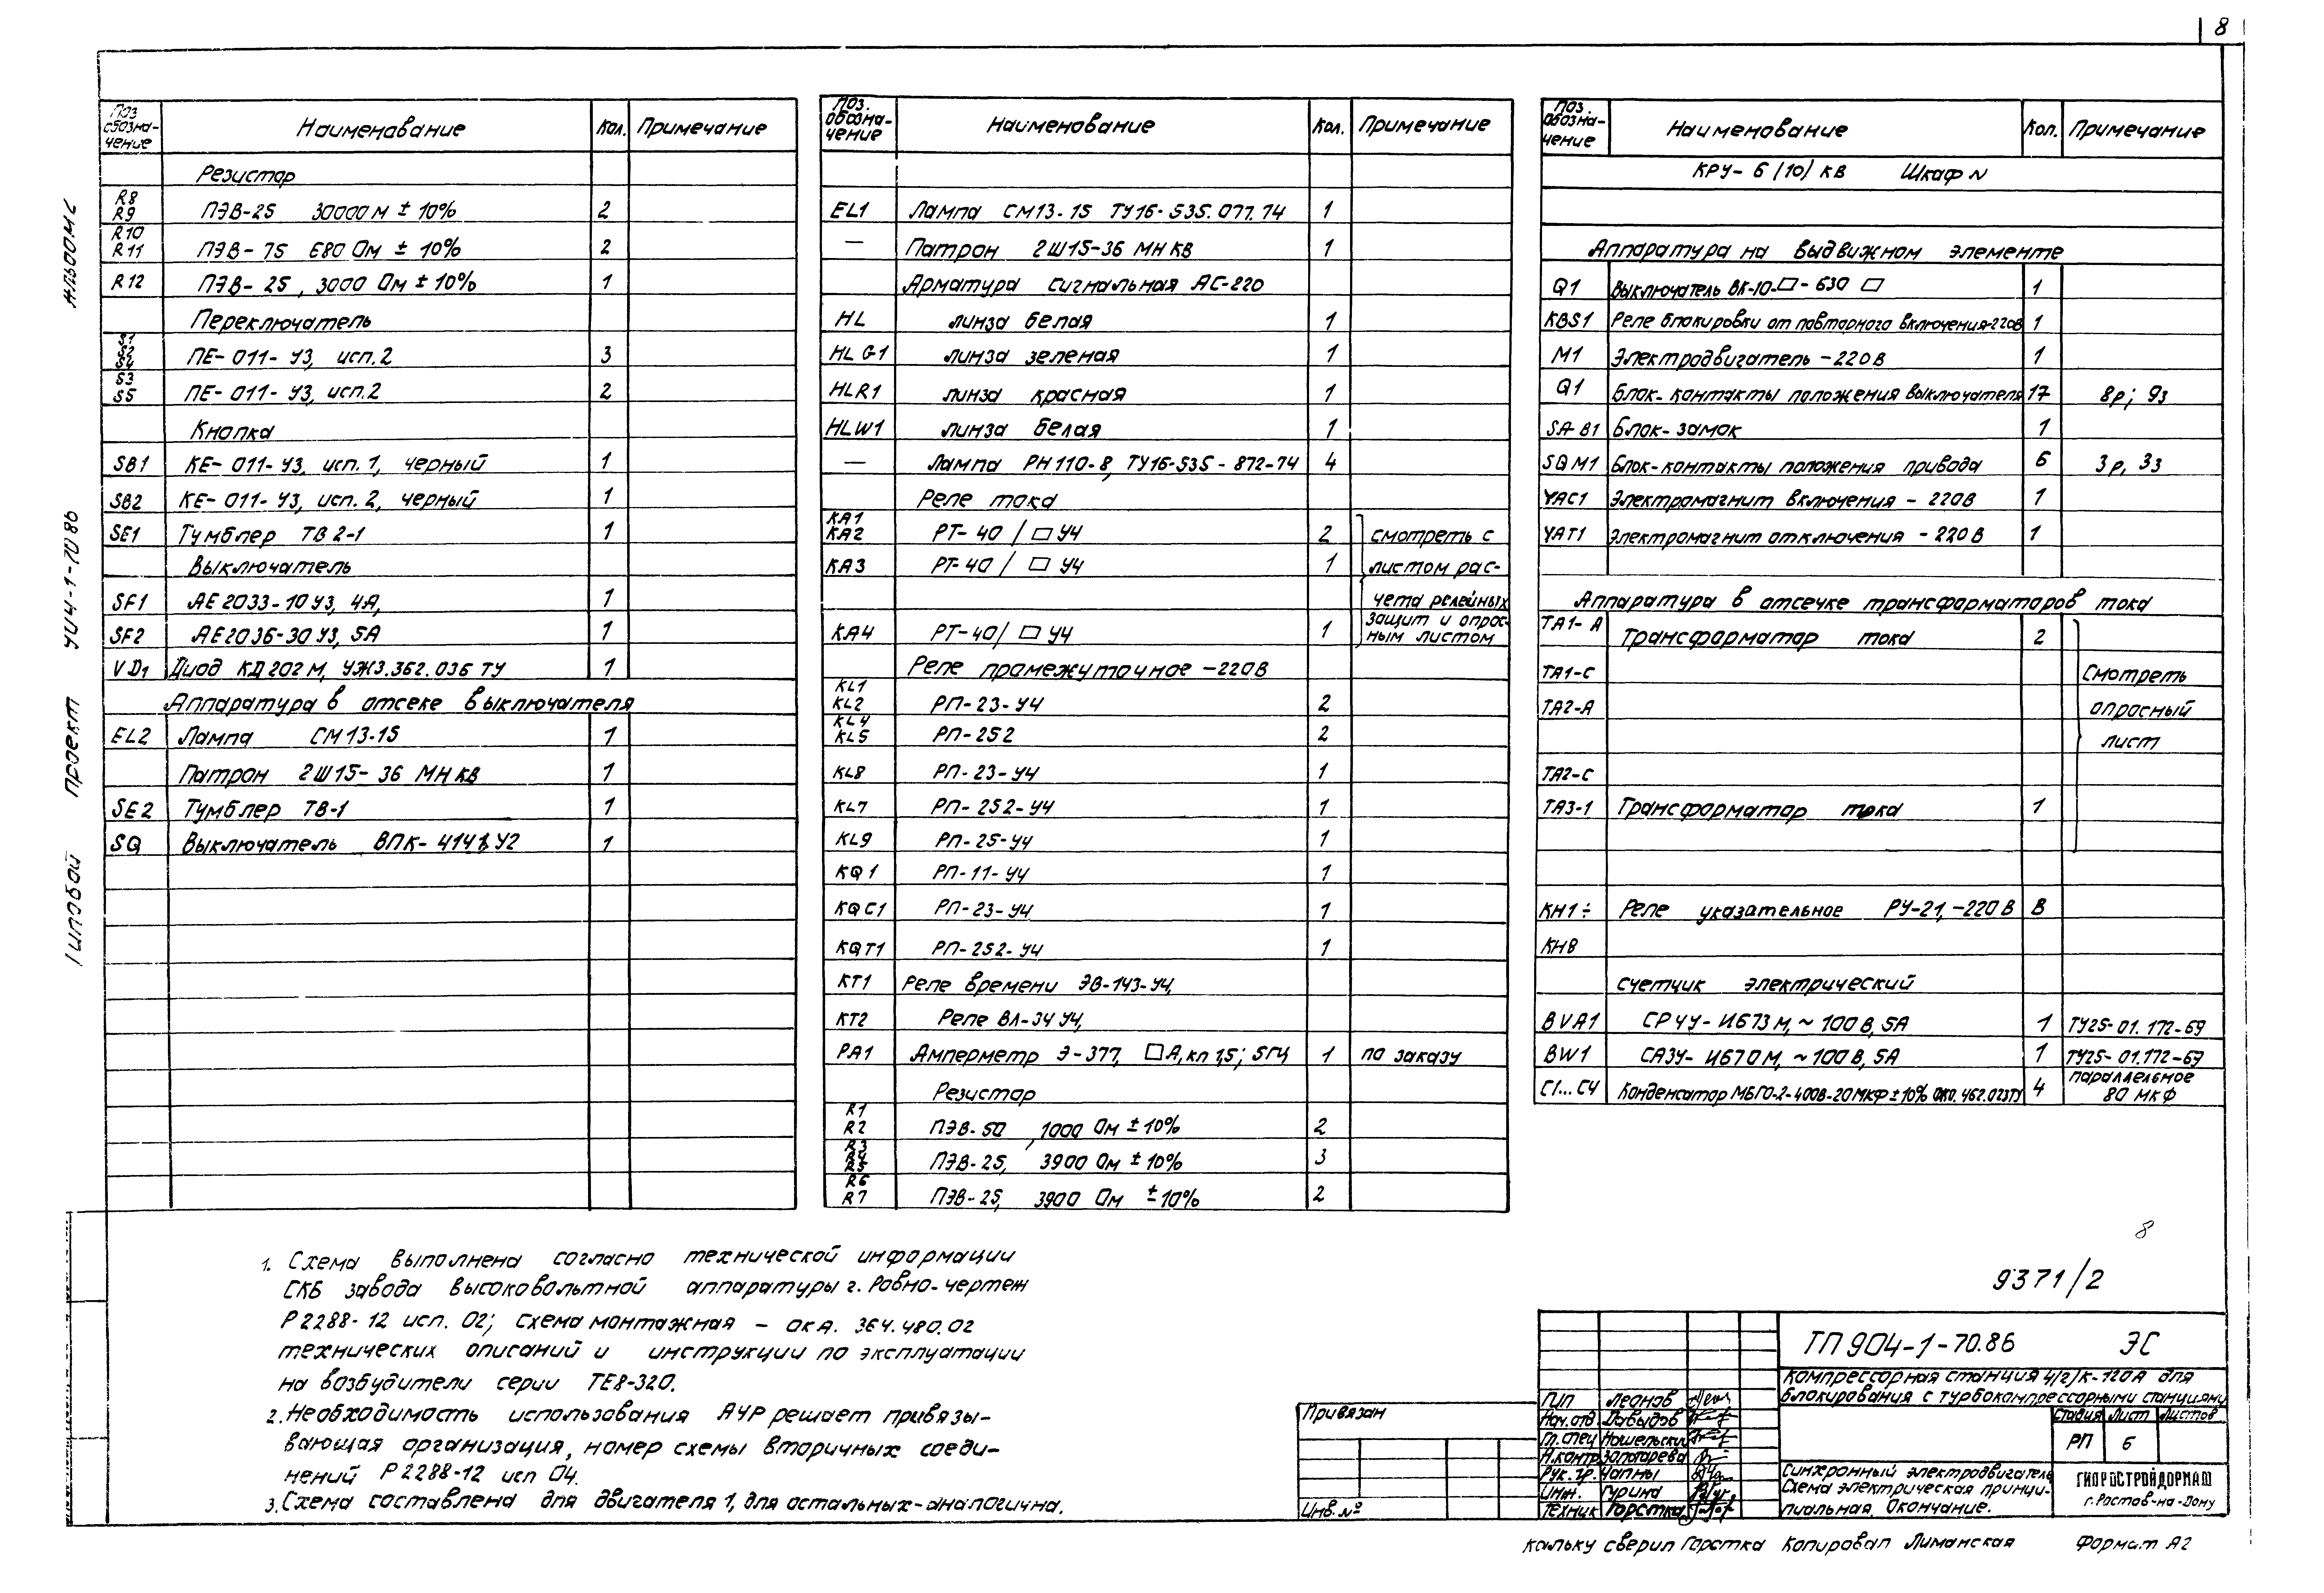 8
Поз обозна- чение Наименование Кол. Примечание
Резистор
R8 R9 ПЭВ-25 3000 Ом ± 10% 2
R10 R11 ПЭВ-75 680 Ом ± 10% 2
R12 ПЭВ-25, 3000 Ом ± 10% 1
Переключатель
S1 S2 S4 ПЕ-011-У3, исп.2 3
S3 S5 ПЕ-011-У3, исп.2 2
Кнопка
SB1 КЕ-011-У3, исп.1, черный 1
SB2 КЕ-011-У3, исп.2, черный 1
SE1 Тумблер ТВ 2-1 1
Выключатель
SF1 АЕ2033-10У3, 4А, 1
SF2 АЕ2036-30У3, 5А 1
VD1 Диод КД202М, УЖ3.362.036 ТУ 1
Аппаратура в отсеке выключателя
EL2 Лампа СМ13-15 1
Патрон 2Ш15-36 МН КВ 1
SE2 Тумблер ТВ-1 1
SQ Выключатель ВПК-4141У2 1
Поз. обозна- чение Наименование Кол. Примечание
EL1 Лампа СМ13-15 ТУ16-535.077.74 1
— Патрон 2Ш15-36 МН КВ 1
Арматура сигнальная АС-220
HL линза белая 1
HLG1 линза зеленая 1
HLR1 линза красная 1
HLW1 линза белая 1
— Лампа РН110-8, ТУ16-535-872-74 4
Реле тока
KA1 KA2 РТ-40/□ У4 2 смотреть с
KA3 РТ-40/□ У4 1 листом рас-
чета релейных
KA4 РТ-40/□ У4 1 защит и опрос- ным листом
Реле промежуточное -220В
KL1 KL2 РП-23-У4 2
KL4 KL5 РП-252 2
KL8 РП-23-У4 1
KL7 РП-252-У4 1
KL9 РП-25-У4 1
KQ1 РП-11-У4 1
KQC1 РП-23-У4 1
KQT1 РП-252-У4 1
KT1 Реле времени ЭВ-143-У4,
KT2 Реле ВЛ-34 У4,
PA1 Амперметр Э-377, □А, кл 1,5; 5ГЦ 1 по заказу
Резистор
R1 R2 ПЭВ-50, 1000 Ом ± 10% 2
R3 R4 R5 ПЭВ-25, 3900 Ом ± 10% 3
R6 R7 ПЭВ-25, 3900 Ом ± 10% 2
Поз. обозна- чение Наименование Кол. Примечание
КРУ-6(10) кВ Шкаф N
Аппаратура на выдвижном элементе
Q1 Выключатель ВК-10-□-630 □ 1
KBS1 Реле блокировки от повторного включения-220В 1
M1 Электродвигатель -220В 1
Q1 Блок-контакты положения выключателя 17 8р; 9з
SA B1 Блок-замок 1
SQM1 Блок-контакты положения привода 6 3р, 3з
YAC1 Электромагнит включения - 220В 1
YAT1 Электромагнит отключения - 220В 1
Аппаратура в отсечке трансформаторов тока
TA1-A Трансформатор тока 2
TA1-C Смотреть
TA2-A опросный
лист
TA2-C
TA3-1 Трансформатор тока 1
KH1÷ Реле указательное РУ-21, -220 В 8
KH8
Счетчик электрический
BVA1 СР4У-И673М, ~100В, 5А 1 ТУ25-01.172-69
BW1 САЗУ-И670М, ~100В, 5А 1 ТУ25-01.172-69
C1...C4 Конденсатор МБГО-2-400В-20МКФ ± 10% ОЖО.462.023ТУ 4 параллельное 80 МКФ
1. Схема выполнена согласно технической информации
СКБ завода высоковольтной аппаратуры г. Ровно-чертеж
Р2288-12 исп. 02; схема монтажная – ОКА. 364.480.02
технических описаний и инструкции по эксплуатации
на возбудители серии ТЕ8-320.
2. Необходимость использования АЧР решает привязы-
вающая организация, номер схемы вторичных соеди-
нений Р2288-12 исп 04.
3. Схема составлена для двигателя 1, для остальных-аналогична.
8
9371/2
Привязан
Инв. №
ТП 904-1-70.86 ЭС
Компрессорная станция 4/2/К-120А для
блокирования с турбокомпрессорными станциями
ГИП Леонов
Нач.отд. Давыдов
Гл.спец Кошельский
Н.контр Золотарева
Рук.гр. Чапны
Инж. Гурина
Техник Горстка
Стадия Лист Листов
РП 6
Синхронный электродвигатель
Схема электрическая принци-
пиальная. Окончание.
ГИПРОСТРОЙДОРМАШ
г. Ростов-на-Дону
Кальку сверил Горстка Копировал Лиманская Формат А2